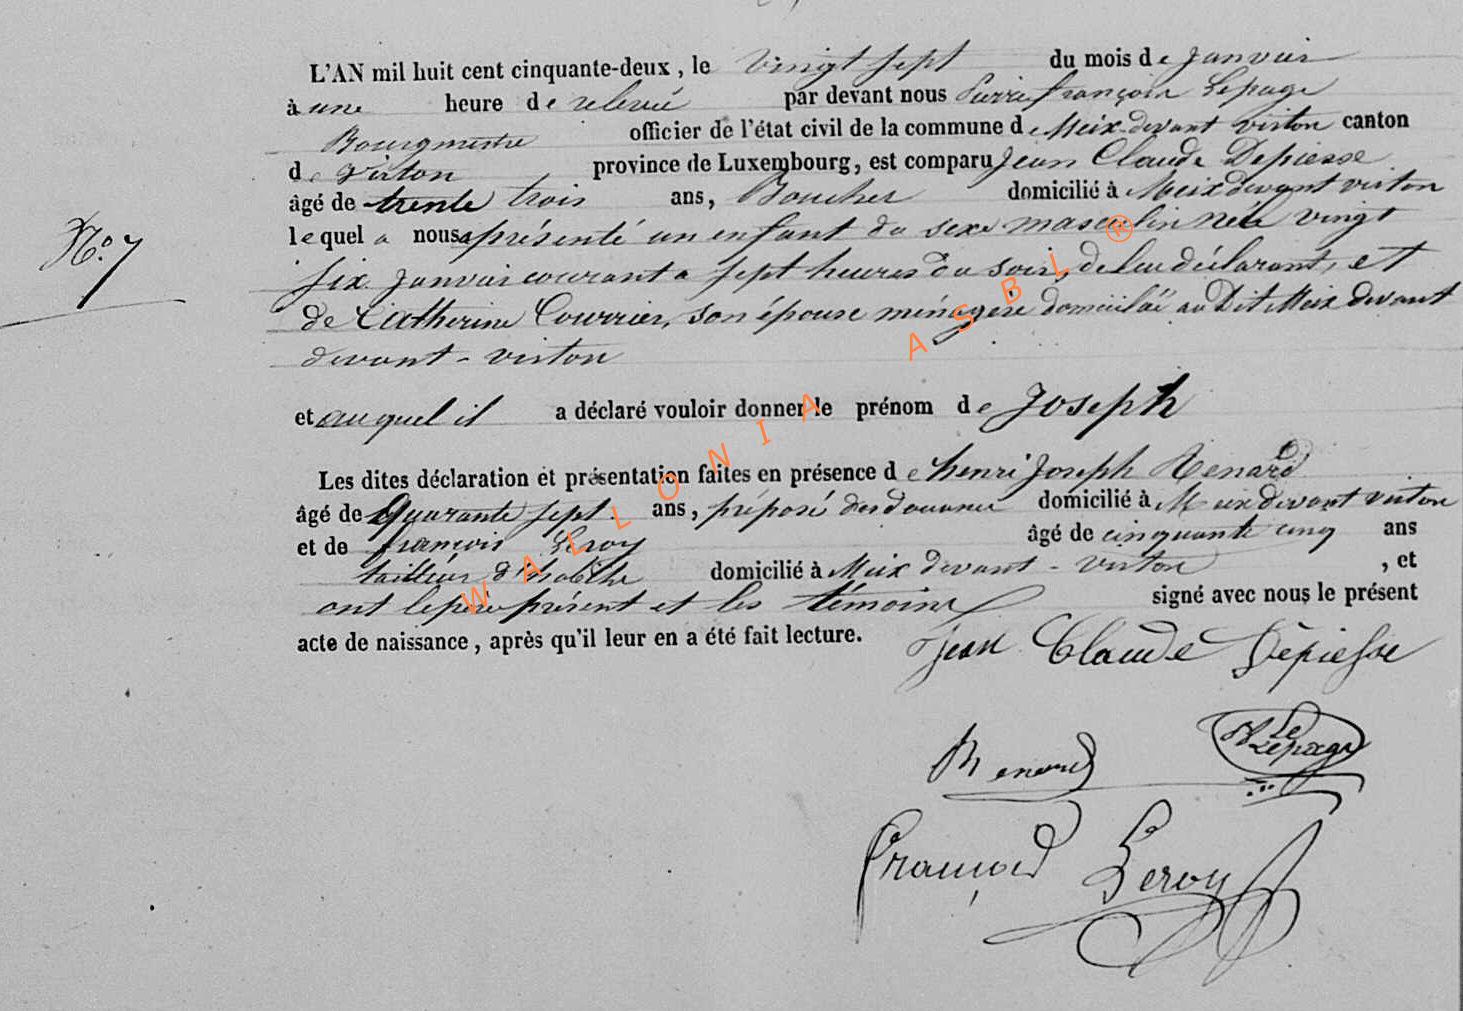 L'AN mil huit cent cinquante-deux, le vingt sept du mois de janvier
à une heure de relevée par devant nous Pierre françois Lepage
Bourgmestre officier de l'état civil de la commune de Meix-devant virton canton
de Virton province de Luxembourg, est comparu Jean Claude Depiesse
âgé de trente trois ans, Boucher domicilié à Meix devant virton
N° 7 lequel a nous a présenté un enfant du sexe masculin née le vingt
six janvier courant a sept heures du soir, de lui déclarant, et
de Catherine Courrier, son épouse ménagère domiciliée au Dit Meix devant
devant - virton
et auquel il a déclaré vouloir donner le prénom de Joseph
Les dites déclaration et présentation faites en présence de henri Joseph Renard
âgé de Quarante sept ans, préposé des douanes domicilié à Meix devant virton
et de françois Leroy âgé de cinquante cinq ans
tailleur d'habits domicilié à Meix devant - virton , et
ont le père présent et les témoins signé avec nous le présent
acte de naissance, après qu'il leur en a été fait lecture.
Jean Claude Dèpiesse
Renard Lepage
François Leroy
WALLONIA ASBL ®